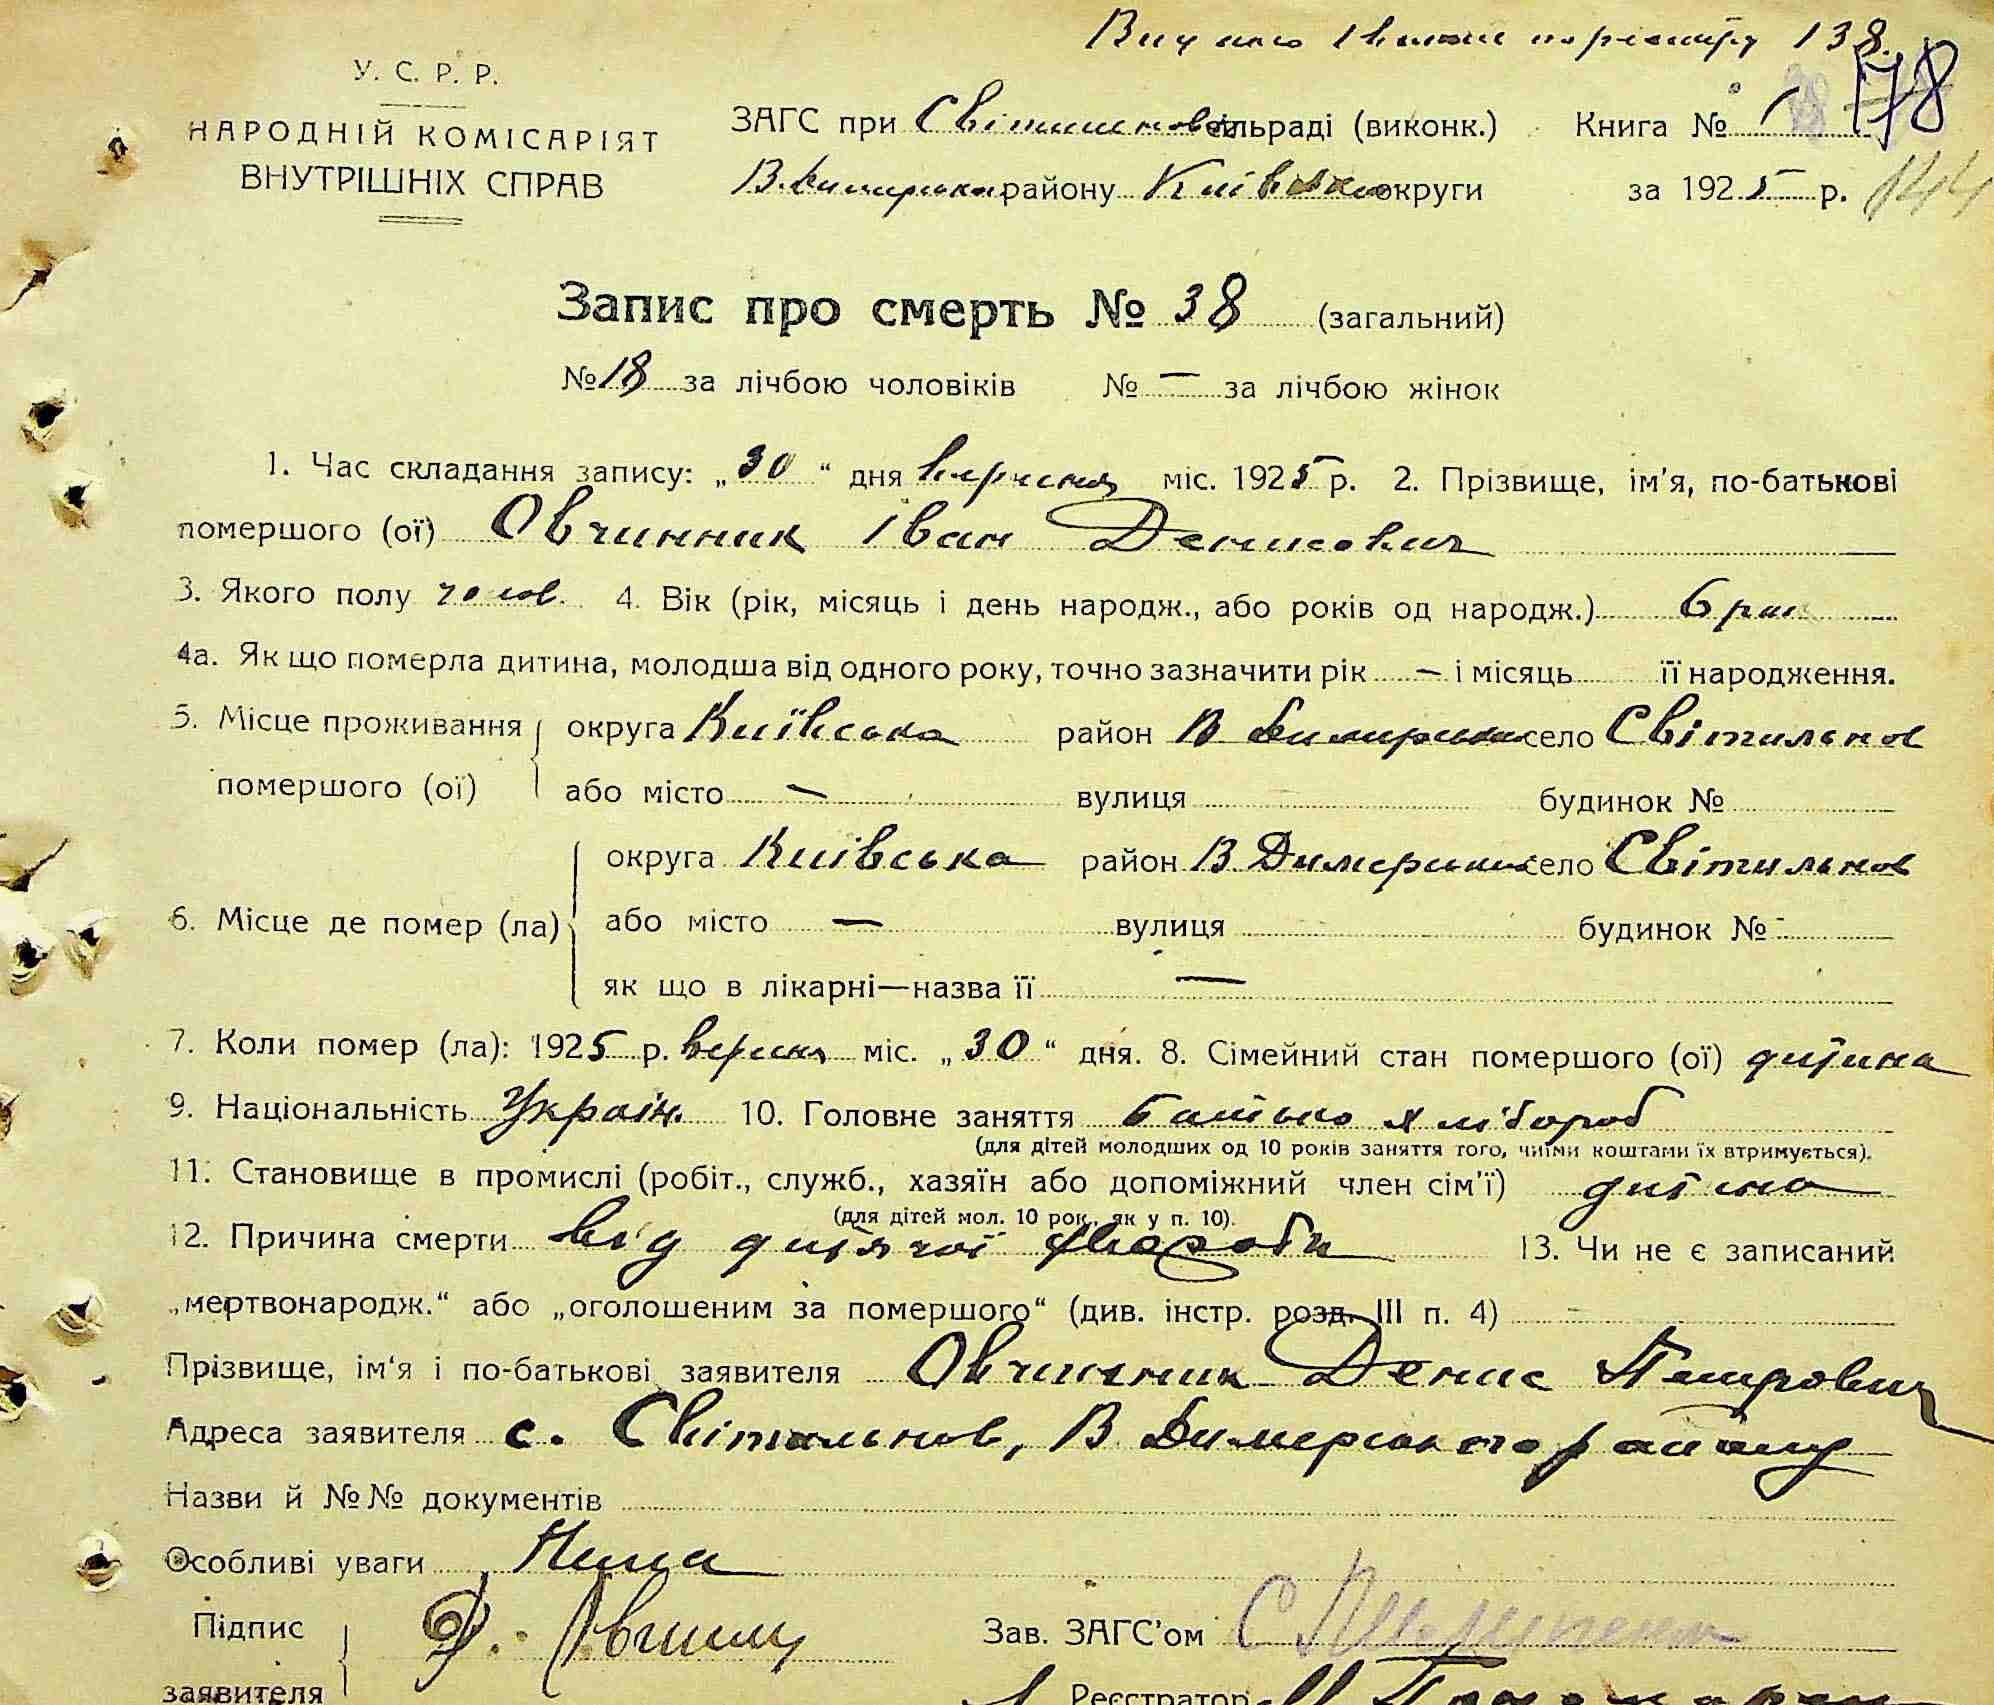 138.
У. С. Р. Р.
НАРОДНІЙ КОМІСАРІЯТ
ВНУТРІШНІХ СПРАВ
ЗАГС при Світильнов сільраді (виконк.) Книга № 1 178
В. Димерськ району Київсько округи за 1925 р. 144
Запис про смерть № 38 (загальний)
№ 18 за лічбою чоловіків № — за лічбою жінок
1. Час складання запису: „30“ дня вересня міс. 1925 р. 2. Прізвище, ім'я, по-батькові
помершого (ої) Овчинник Іван Денисович
3. Якого полу чолов. 4. Вік (рік, місяць і день народж., або років од народж.) 6 рок
4а. Як що померла дитина, молодша від одного року, точно зазначити рік — і місяць її народження.
5. Місце проживання помершого (ої) округа Київська район В Димерськ село Світильнов
або місто — вулиця будинок №
6. Місце де помер (ла) округа Київська район В. Димерськ село Світильнов
або місто — вулиця будинок № -
як що в лікарні—назва її —
7. Коли помер (ла): 1925 р. вересня міс. „30“ дня. 8. Сімейний стан помершого (ої) дитина
9. Національність Україн. 10. Головне заняття батько хлібороб
(для дітей молодших од 10 років заняття того, чиїми коштами їх втримується).
11. Становище в промислі (робіт., служб., хазяїн або допоміжний член сім'ї) дитина
(для дітей мол. 10 рок., як у п. 10).
12. Причина смерти від дитячої хвороби 13. Чи не є записаний
„мертвонародж.“ або „оголошеним за помершого“ (див. інстр. розд. III п. 4) -
Прізвище, ім'я і по-батькові заявителя Овчинник Денис Петрович
Адреса заявителя с. Світильнов, В Димерського району
Назви й №№ документів
Особливі уваги Нима
Підпис заявителя Д. Овчинн
Зав. ЗАГС'ом С
Реєстратор